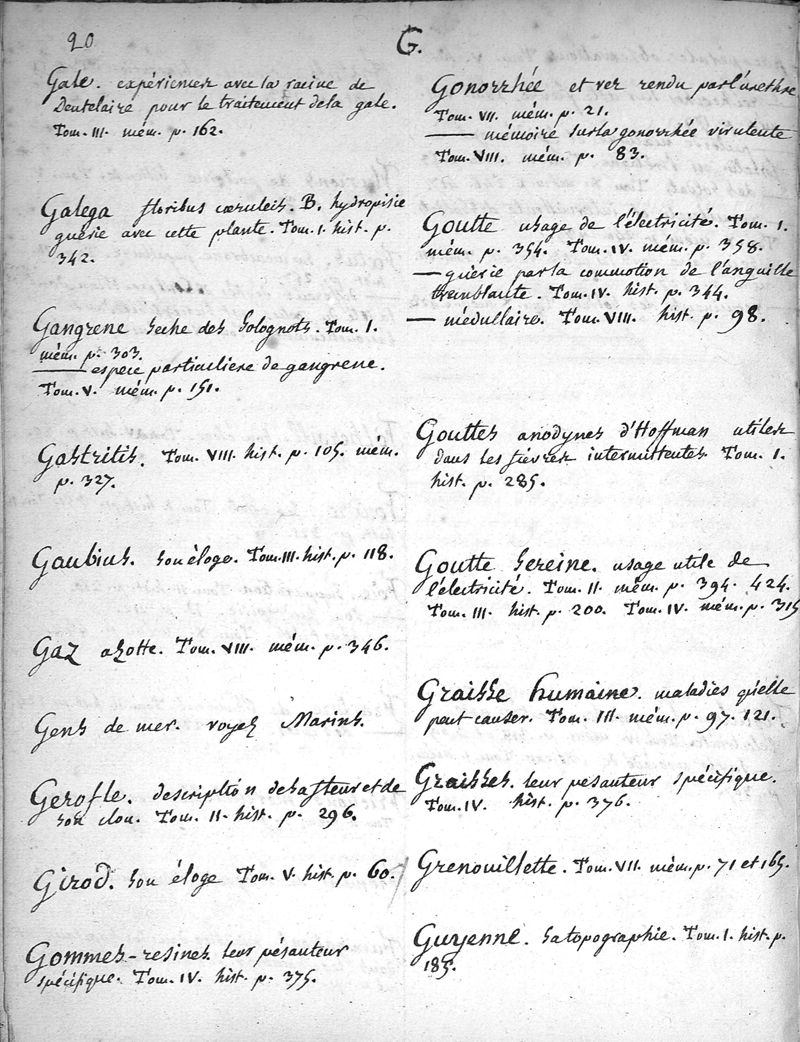 20
G.
Gale. expériences avec la racine de
Dentelaire pour le traitement de la gale.
Tom. III. mém. p. 162.
Galega floribus cæruleis. B. hydropisie
guérie avec cette plante. Tom. I. hist. p.
342.
Gangrene seche des Solognots. Tom. I.
mém. p. 303.
— espece particuliere de gangrene.
Tom. V. mém. p. 151.
Gastritis. Tom. VIII. hist. p. 105. mém.
p. 327.
Gaubius. son éloge. Tom. III. hist. p. 118.
Gaz azotte. Tom. VIII. mém. p. 346.
Gens de mer. voyez Marins.
Gerofle. description de sa fleur et de
son clou. Tom. II. hist. p. 296.
Girod. son éloge Tom. V. hist. p. 60.
Gommes-resines leur pésanteur
spécifique. Tom. IV. hist. p. 375.
Gonorrhée et vers rendu par l'urethre
Tom. VII. mém. p. 21.
— mémoire sur la gonorrhée virulente
Tom. VIII. mém. p. 83.
Goutte usage de l'électricité. Tom. I.
mém. p. 354. Tom. IV. mém. p. 358.
— guérie par la commotion de l'anguille
tremblante. Tom. IV. hist. p. 344.
— médullaire. Tom. VIII. hist. p. 98.
Gouttes anodynes d'Hoffman utiles
dans les fiévres intermittentes Tom. I.
hist. p. 285.
Goutte Sereine. usage utile de
l'électricité. Tom. II. mém. p. 394. 424.
Tom. III. hist. p. 200. Tom. IV. mém. p. 315
Graisse humaine. maladies qu'elle
peut causer. Tom. III. mém. p. 97. 121.
Graisses. leur pesanteur spécifique.
Tom. IV. hist. p. 376.
Grenouillette. Tom. VII. mém. p. 71 et 165.
Guyenne. sa topographie. Tom. I. hist. p.
185.